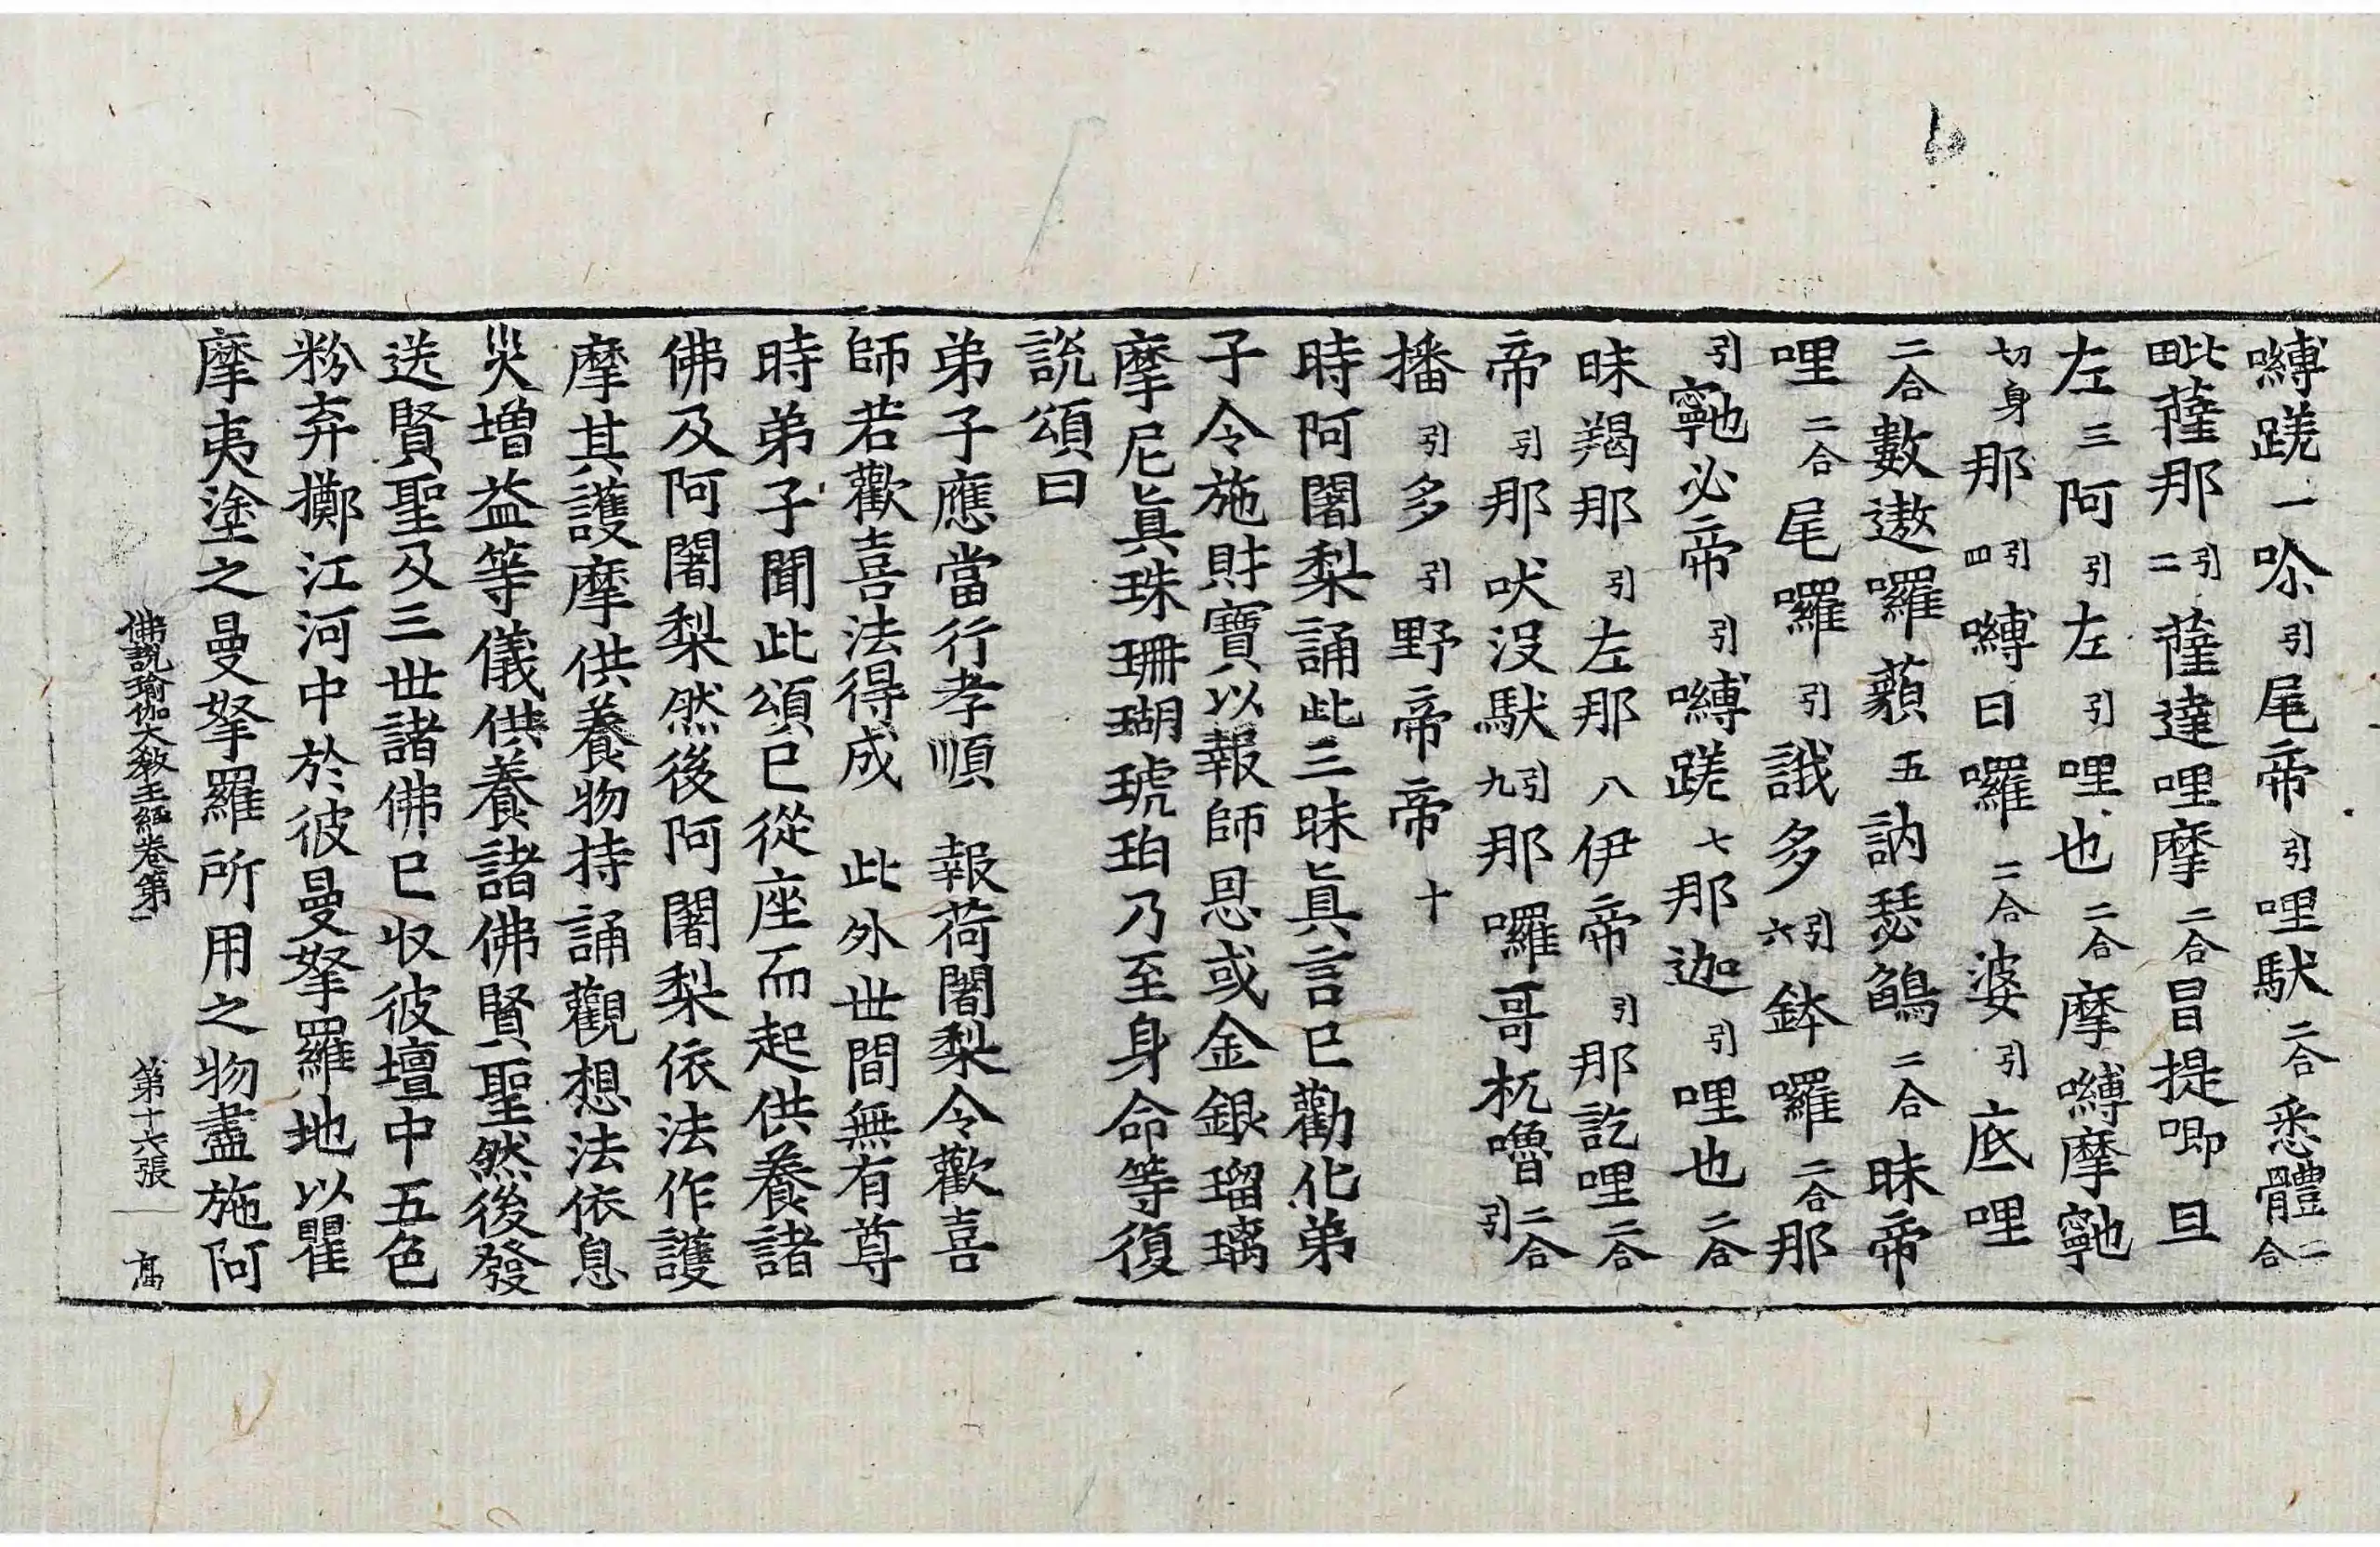 嚩蹉一唅引尾帝引哩馱二合悉體二合
毗薩那引二薩達哩摩二合冒提唧旦
左三阿引左引哩也二合摩嚩摩寧
切身那引四嚩日囉二合婆引底哩
二合數遨囉藐五訥瑟鷠二合昧帝
哩二合尾囉引誐多引六鉢囉二合那
引必帝引嚩蹉七那迦引哩也二合
昧羯那引左那八伊帝引那訖哩二合
帝引那吠沒馱引九那囉哥杌嚕二合引
播引多引野帝帝十
時阿闍梨誦此三昧眞言巳勸化弟
子令施財寶以報師恩或金銀瑠璃
摩尼眞珠珊瑚琥珀乃至身命等復
說頌曰
弟子應當行孝順　報荷闍梨令歡喜
師若歡喜法得成　此外世間無有尊
時弟子聞此頌巳從座而起供養諸
佛及阿闍梨然後阿闍梨依法作護
摩其護摩供養物持誦觀想法依息
災增益等儀供養諸佛賢聖然後發
送賢聖及三世諸佛巳收彼壇中五色
粉弃擲江河中於彼曼拏羅地以瞿
摩夷塗之曼拏羅所用之物盡施阿
佛說瑜伽大敎王經卷第一　第十六張　髙